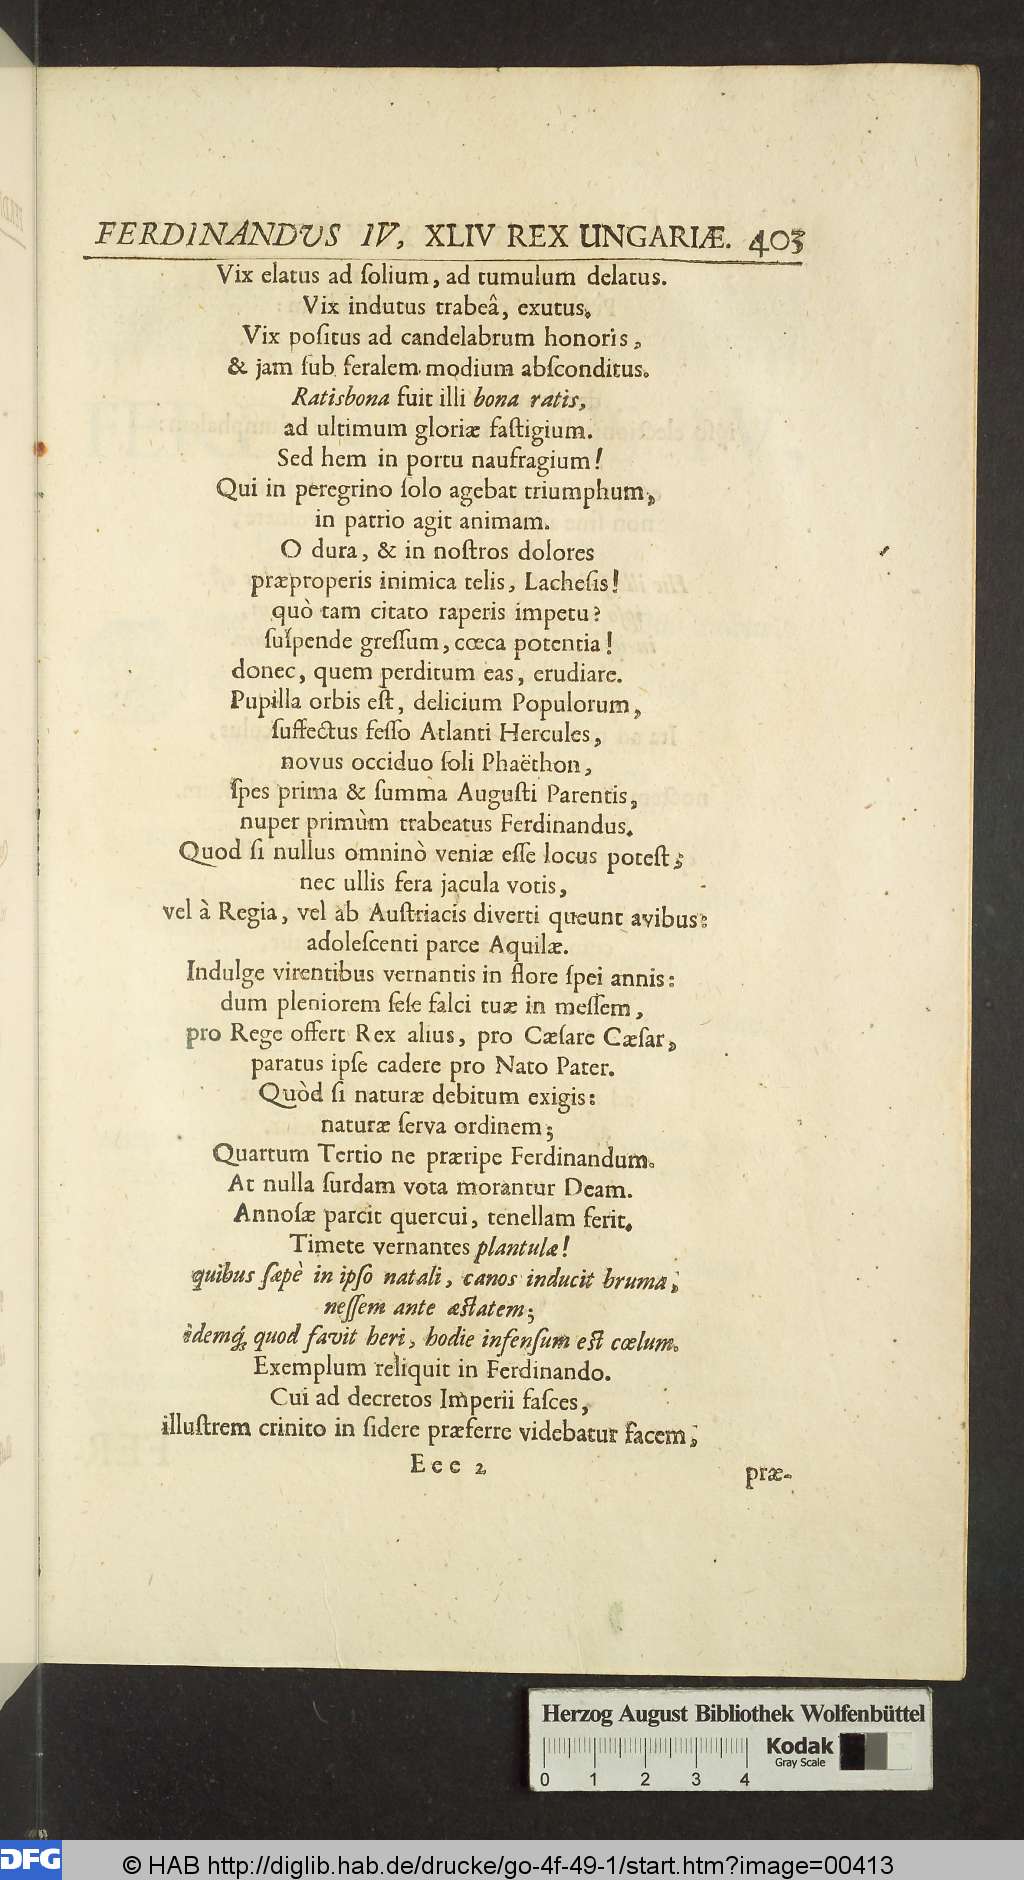 FERDINANDUS IV, XLIV REX UNGARIÆ. 403
Vix elatus ad ſolium, ad tumulum delatus.
Vix indutus trabeâ, exutus.
Vix poſitus ad candelabrum honoris,
& jam ſub feralem modium abſconditus.
Ratisbona fuit illi bona ratis,
ad ultimum gloriæ faſtigium.
Sed hem in portu naufragium!
Qui in peregrino ſolo agebat triumphum,
in patrio agit animam.
O dura, & in noſtros dolores
præproperis inimica telis, Lacheſis!
quò tam citato raperis impetu?
ſuſpende greſſum, cœca potentia!
donec, quem perditum eas, erudiare.
Pupilla orbis eſt, delicium Populorum,
ſuffectus feſſo Atlanti Hercules,
novus occiduo ſoli Phaëthon,
ſpes prima & ſumma Auguſti Parentis,
nuper primùm trabeatus Ferdinandus.
Quod ſi nullus omninò veniæ eſſe locus poteſt;
nec ullis fera jacula votis,
vel à Regia, vel ab Auſtriacis diverti queunt avibus:
adoleſcenti parce Aquilæ.
Indulge virentibus vernantis in flore ſpei annis:
dum pleniorem ſeſe falci tuæ in meſſem,
pro Rege offert Rex alius, pro Cæſare Cæſar,
paratus ipſe cadere pro Nato Pater.
Quòd ſi naturæ debitum exigis:
naturæ ſerva ordinem;
Quartum Tertio ne præripe Ferdinandum.
At nulla ſurdam vota morantur Deam.
Annoſæ parcit quercui, tenellam ferit.
Timete vernantes plantulæ!
quibus ſæpè in ipſo natali, canos inducit bruma,
neſſem ante æſtatem;
idemq́; quod favit heri, hodie infenſum eſt cœlum.
Exemplum reliquit in Ferdinando.
Cui ad decretos Imperii faſces,
illuſtrem crinito in ſidere præferre videbatur facem;
Eee 2
præ-
Herzog August Bibliothek Wolfenbüttel
Kodak
Gray Scale
0 1 2 3 4
DFG
© HAB http://diglib.hab.de/drucke/go-4f-49-1/start.htm?image=00413